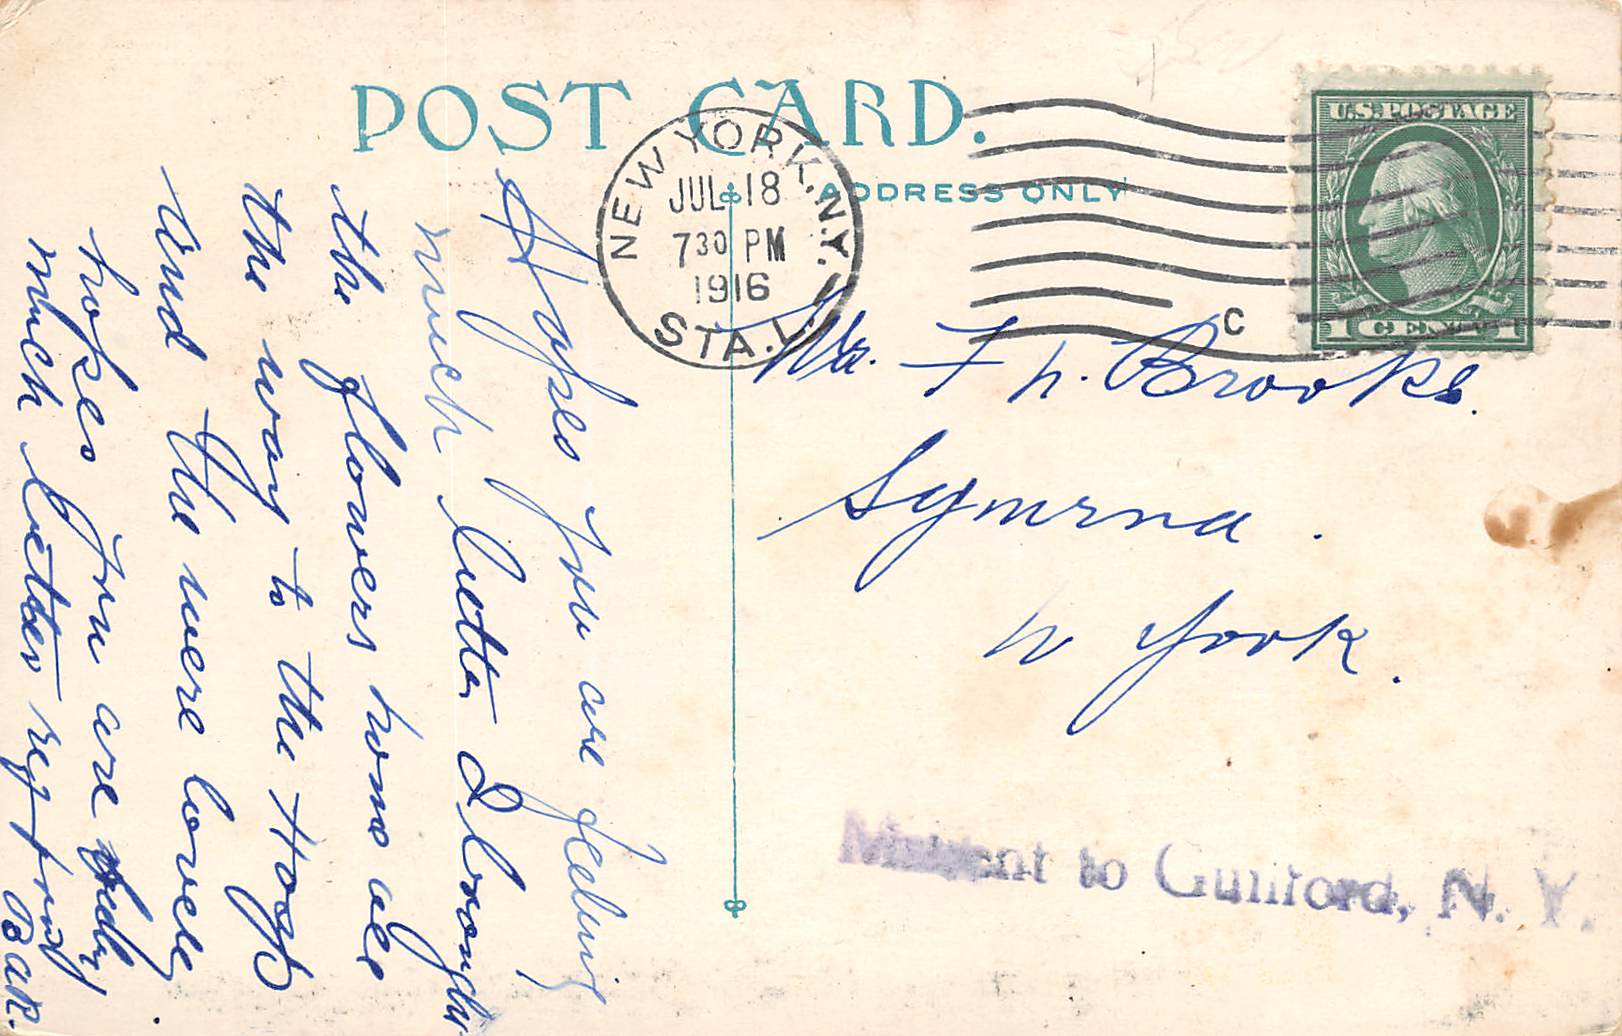 POST CARD.
ADDRESS ONLY
NEW YORK, N.Y.
JUL 18
7 30 PM
1916
STA. L.
C
U.S. POSTAGE
1 CENT 1
Hopes you are feeling
much better I brought
the flowers home all
the way to the Hosp
and the were lovely
hopes you are
much better
F N. Brooks.
Symrna.
N York.
Missent to Guilford, N. Y.